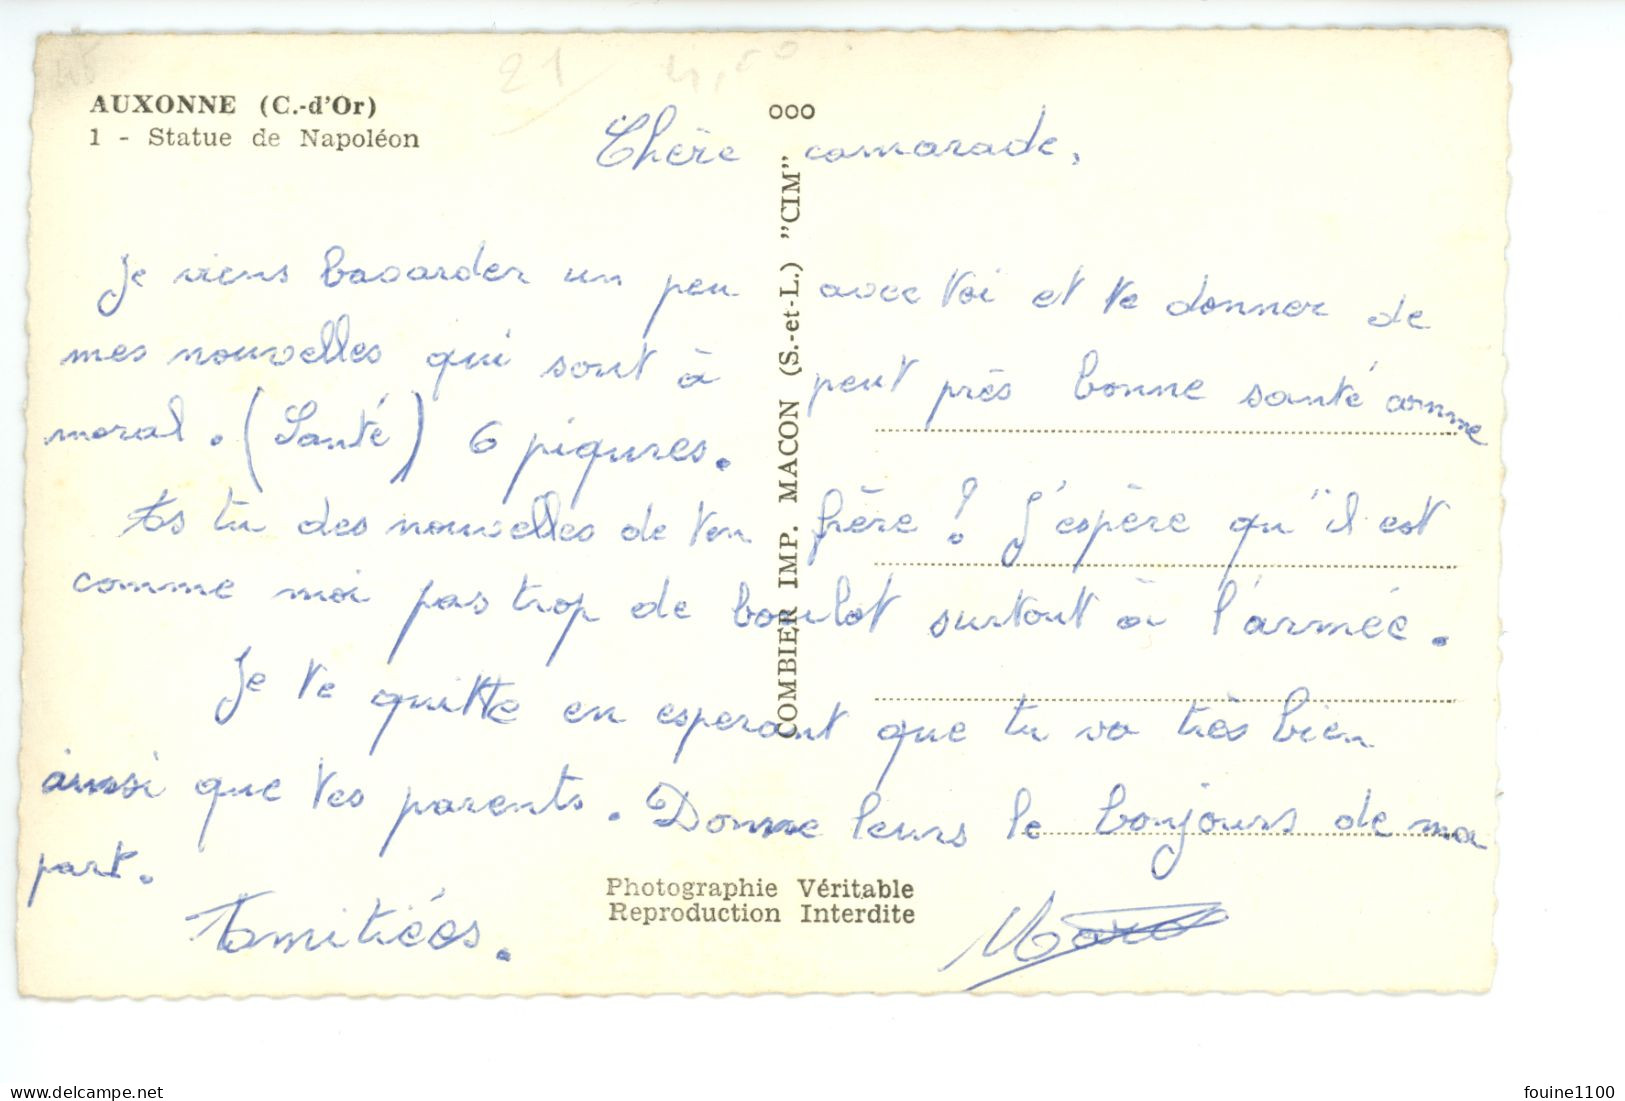 21 4,50
AUXONNE (C.-d'Or)
1 - Statue de Napoléon
Chère camarade,
Je viens bavarder un peu avec toi et te donner de
mes nouvelles qui sont à peut près bonne santé comme
moral. (Santé) 6 piqures.
As tu des nouvelles de ton frère ? J'espère qu'il est
comme moi pas trop de boulot surtout à l'armée.
Je te quitte en esperant que tu va très bien
ainssi que tes parents. Donne leurs le bonjours de ma
part.
Amitiées.
COMBIER IMP. MACON (S.-et-L.) "CIM"
Photographie Véritable
Reproduction Interdite
delcampe.net
fouine1100